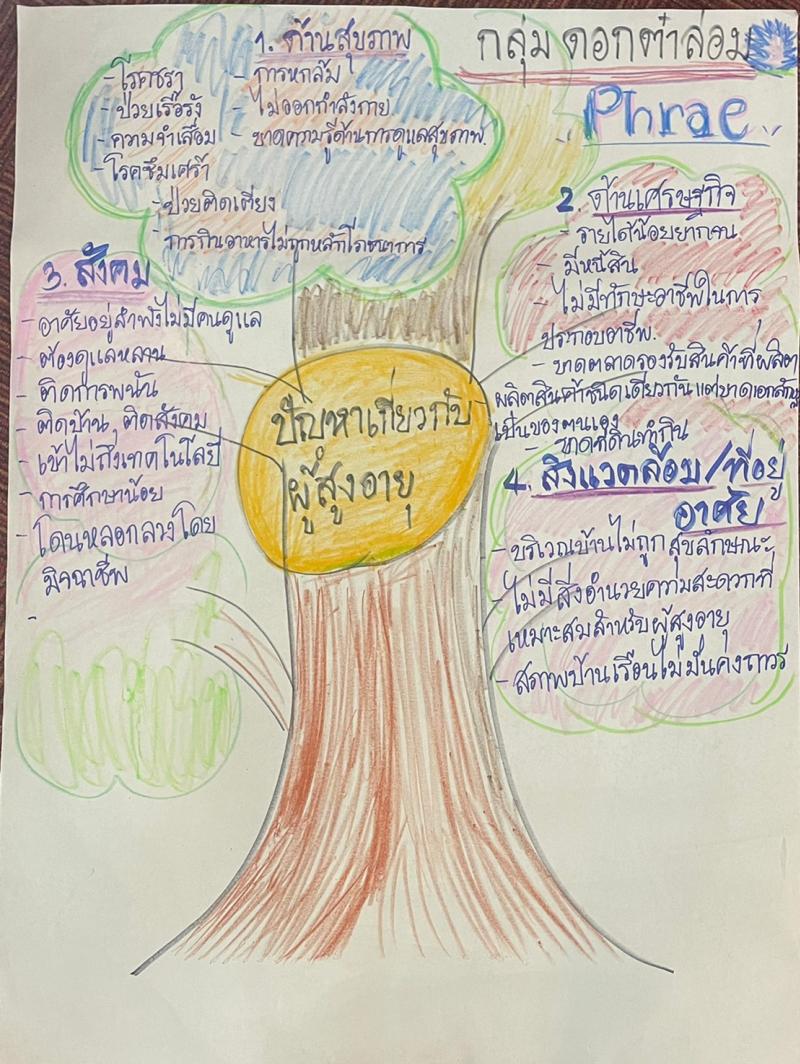 กลุ่ม ดอกต๋าล่อม
Phrae
1. ด้านสุขภาพ
- โรคชรา
- ป่วยเรื้อรัง
- ความจำเสื่อม
- โรคซึมเศร้า
- การหกล้ม
- ไม่ออกกำลังกาย
- ขาดความรู้ด้านการดูแลสุขภาพ.
- ป่วยติดเตียง
- การกินอาหารไม่ถูกหลักโภชนาการ
2. ด้านเศรษฐกิจ
- รายได้น้อยยากจน
- มีหนี้สิน
- ไม่มีทักษะอาชีพในการ
ประกอบอาชีพ.
- ขาดตลาดรองรับสินค้าที่ผลิต
- ผลิตสินค้าชนิดเดียวกันแต่ขาดเอกลักษณ์
เป็นของตนเอง
- ขาดที่ดินทำกิน
3. สังคม
- อาศัยอยู่ลำพังไม่มีคนดูแล
- ต้องดูแลหลาน
- ติดการพนัน
- ติดบ้าน, ติดสังคม
- เข้าไม่ถึงเทคโนโลยี
- การศึกษาน้อย
- โดนหลอกลวงโดย
มิจฉาชีพ
-
ปัญหาเกี่ยวกับ
ผู้สูงอายุ
4. สิ่งแวดล้อม/ที่อยู่
อาศัย
- บริเวณบ้านไม่ถูกสุขลักษณะ
- ไม่มีสิ่งอำนวยความสะดวกที่
เหมาะสมสำหรับผู้สูงอายุ
- สภาพบ้านเรือนไม่มั่นคงถาวร